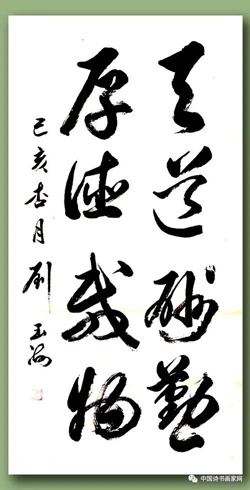 天道酬勤
厚德载物
己亥杏月 刘玉
中国诗书画家网